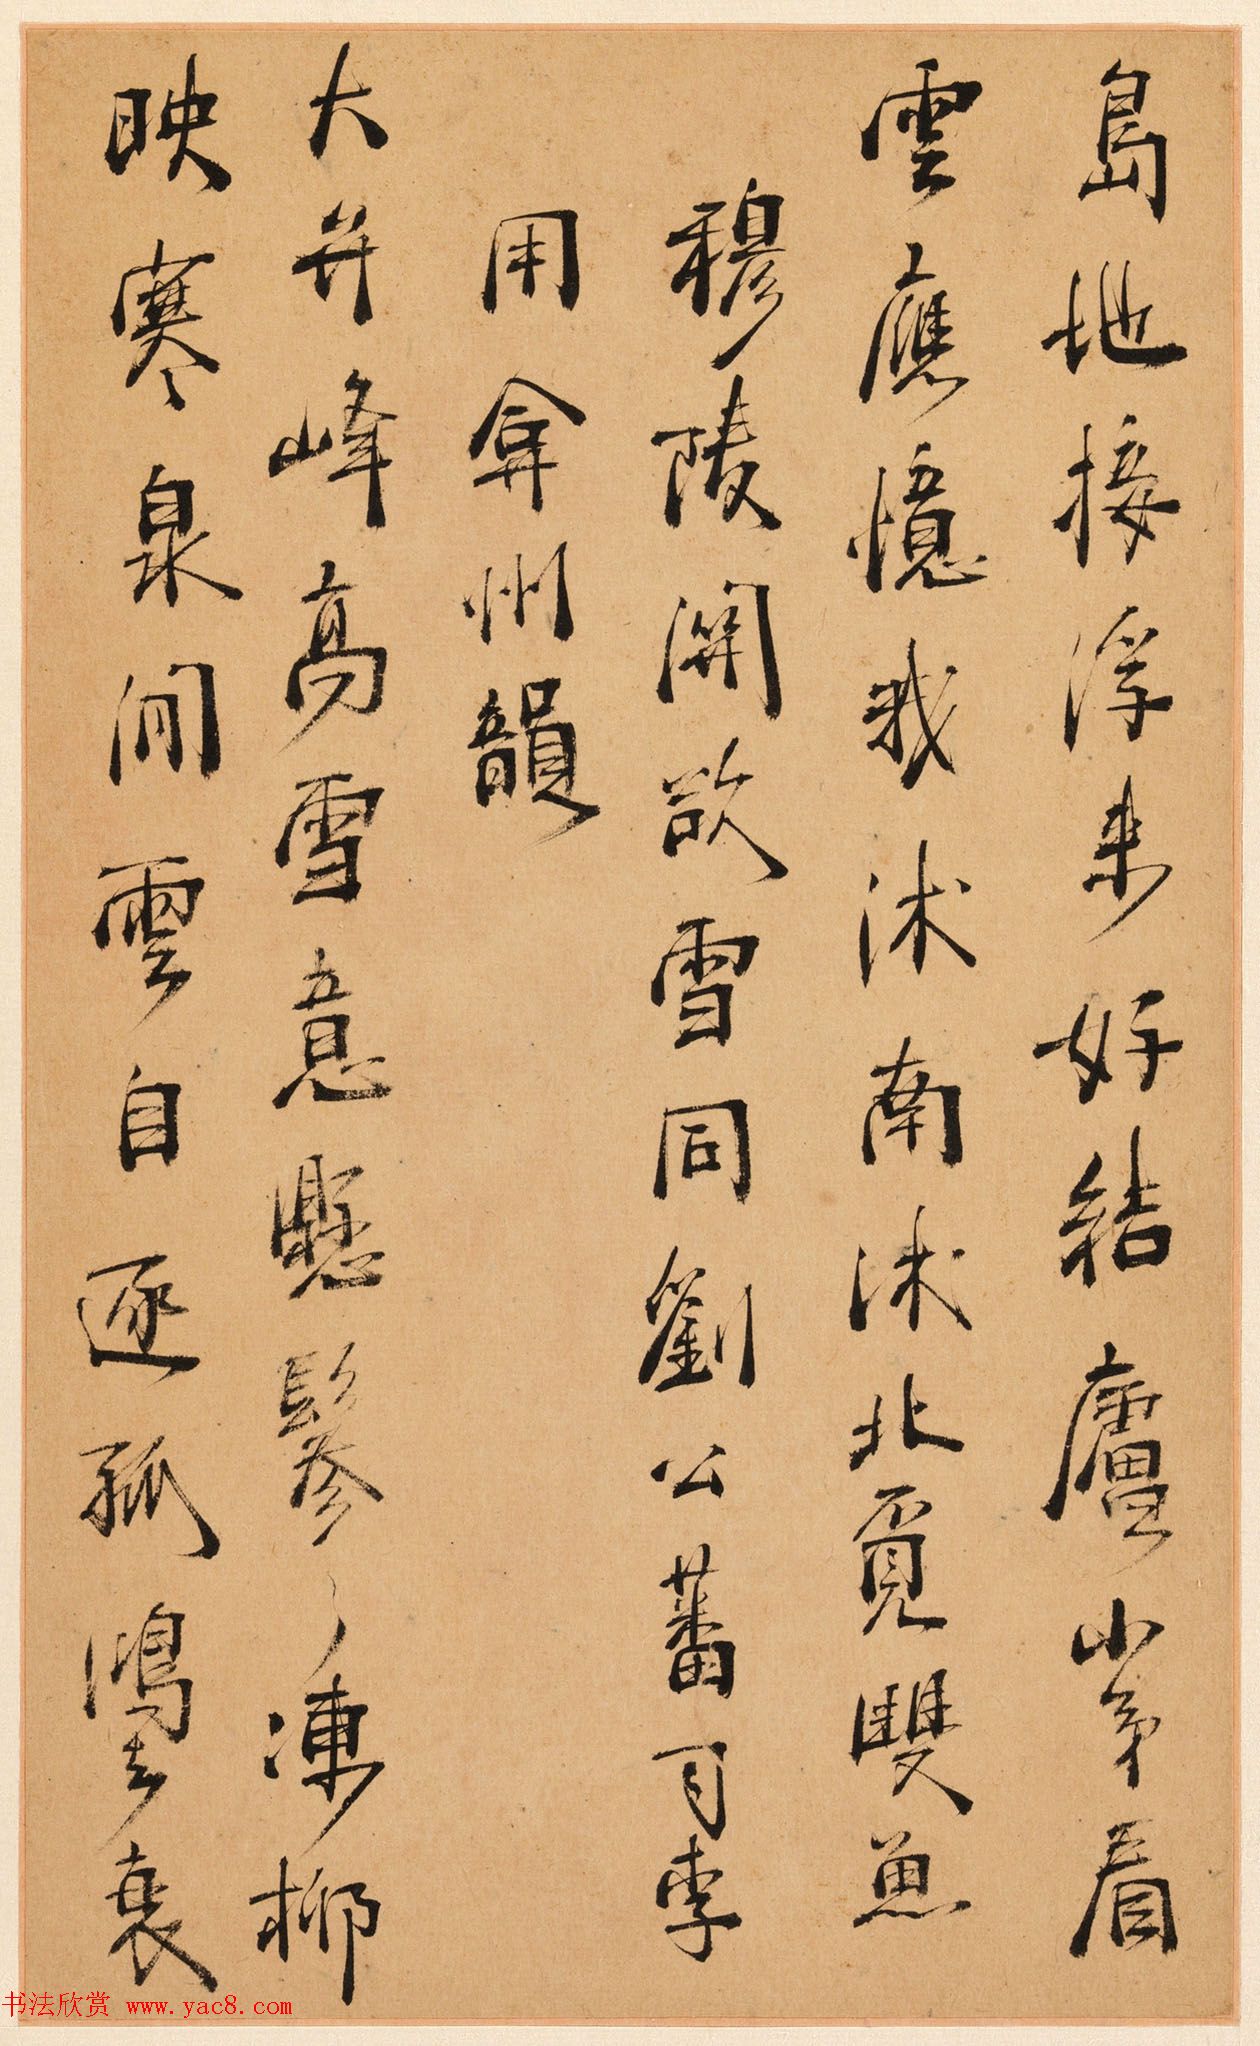 島地接浮来好結廬山弟看
雲應憶我沭南沭北覓雙魚
穆陵開欲雪同劉公蕃司李
用弇州韻
大并峰高雪意懸鬖〻凍柳
映寒泉閒雲自逐孤鴻去衰
书法欣赏 www.yac8.com